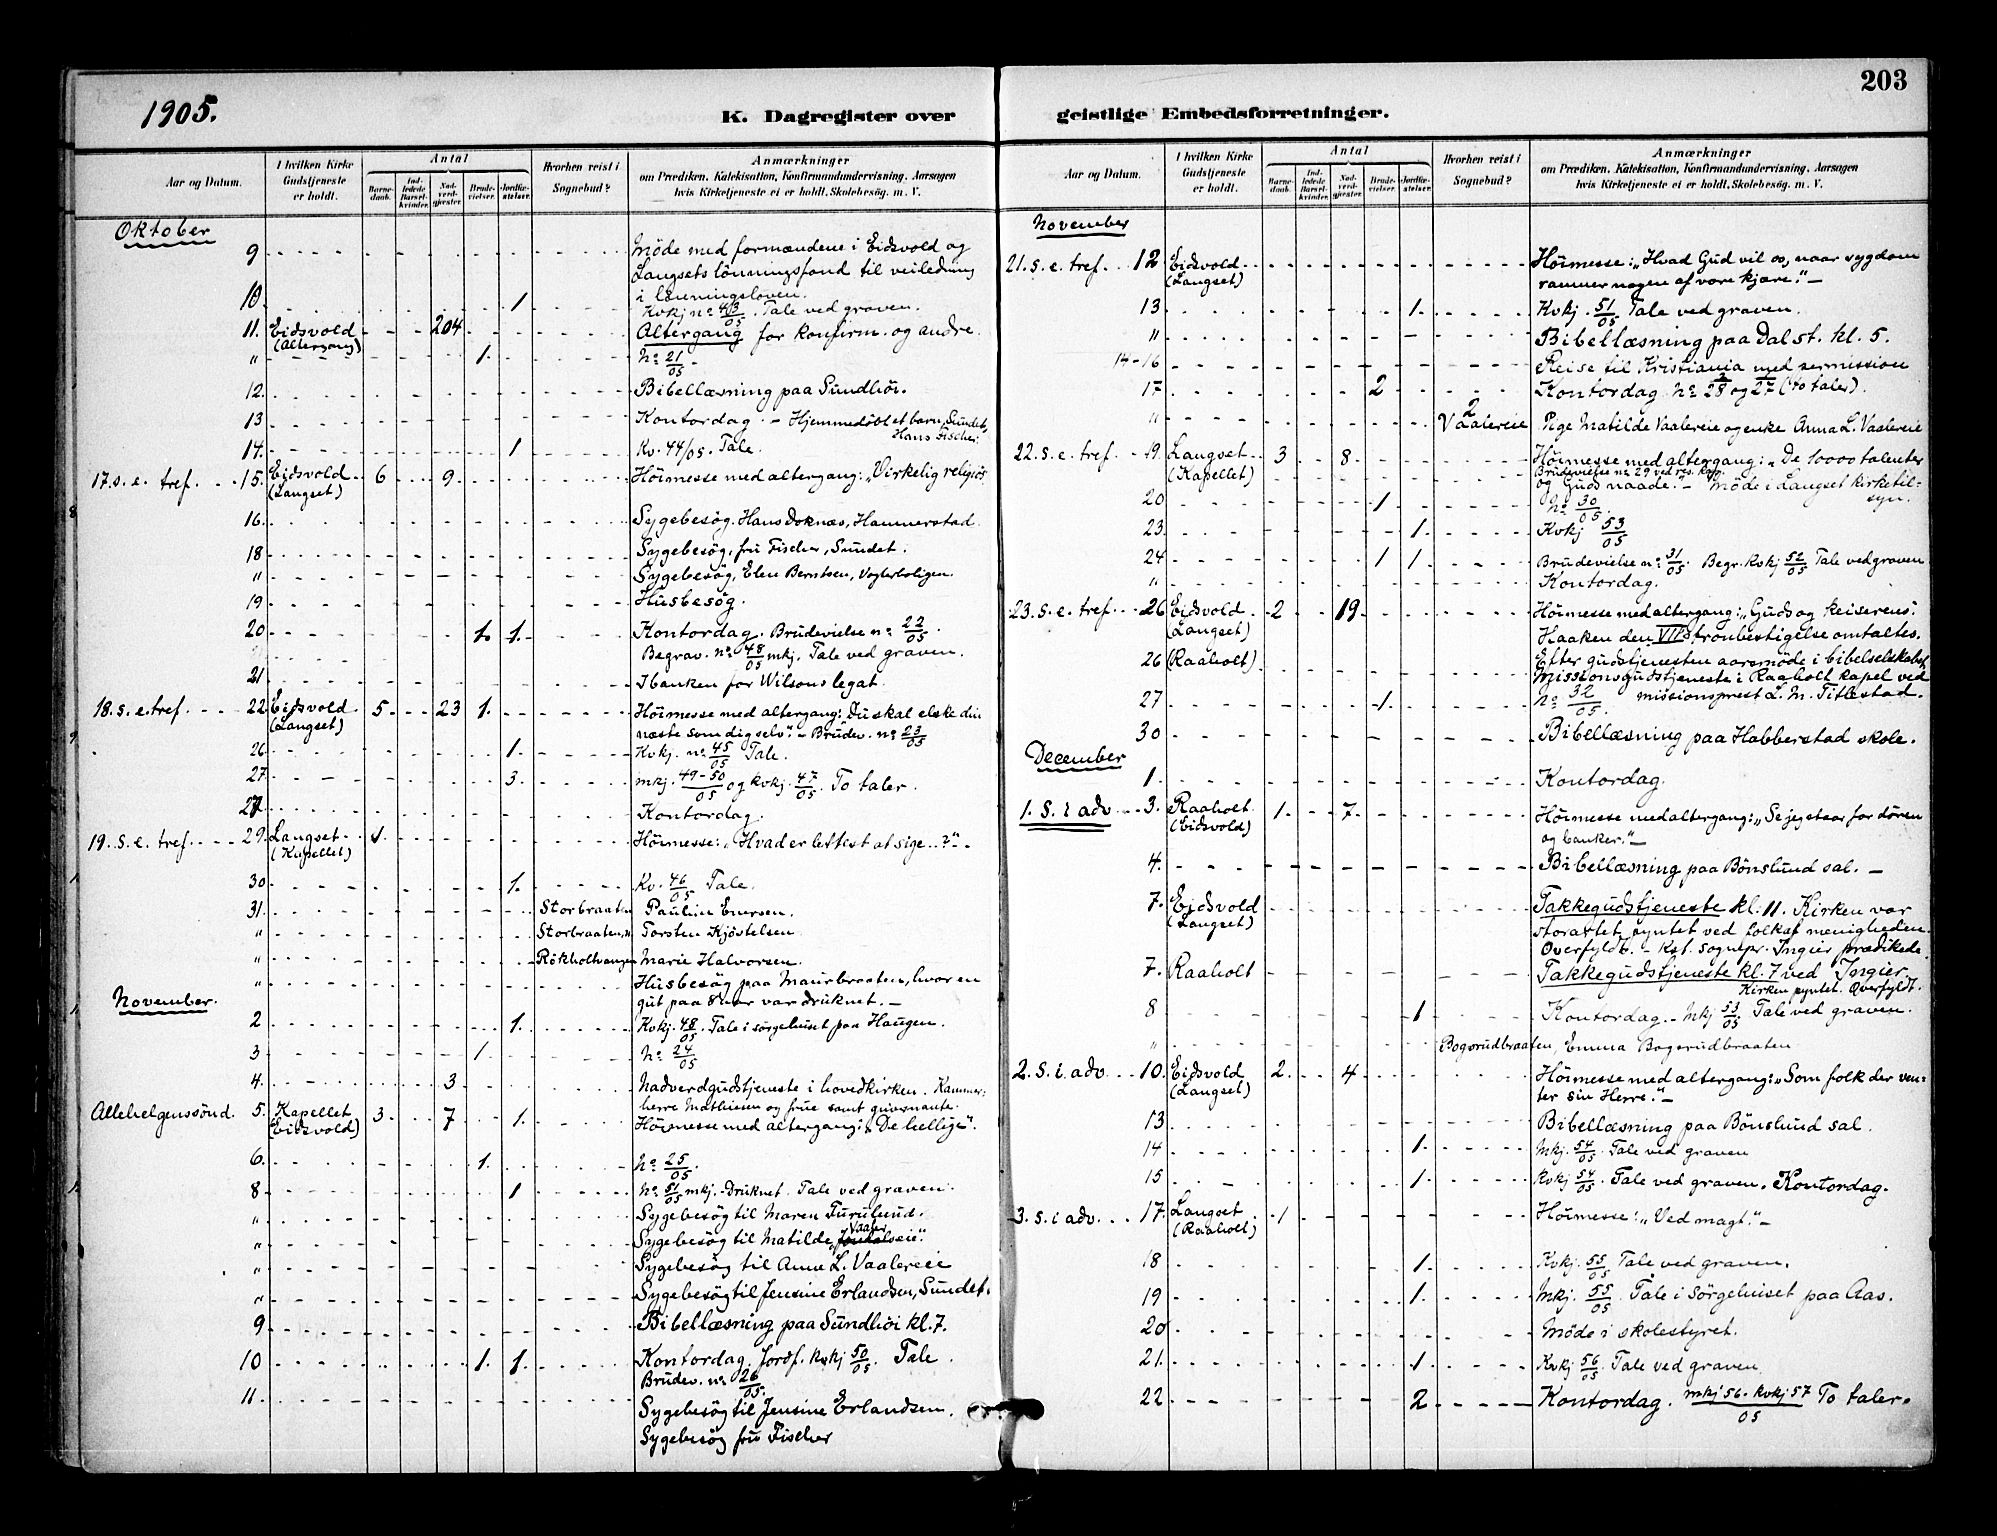 1905.
K. Dagregister over
Aar og Datum.
I hvilken Kirke Gudstjeneste er holdt.
Antal
Barnedaab.
Indledede Barselkvinder.
Nadverdgjester.
Brudevielser.
Jordfæstelser.
Hvorhen reist i Sognebud?
Anmærkninger
om Prædiken, Katekisation, Konfirmandundervisning, Aarsagen
hvis Kirketjeneste ei er holdt, Skolebesøg. m. V.
Oktober
9 Möde med formændene i Eidsvold og
Langsets lönningsfond til veiledning
i lönningsloven.
10. 1 Kvkj nº 43/05. Tale ved graven.
11. Eidsvold 204 Altergang for konfirm. og andre.
(Altergang)
" 1. Nº 21/05 -
12. Bibellæsning paa Sundhöi.
13 Kontordag. - Hjemmedöbt et barn, Sundet,
Hans Fischer.
14. 1 Kv. 44/05. Tale.
17. s. e. tref. 15. Eidsvold 6 9 Höimesse med altergang: „Virkelig religiös.
(Langset)
16. Sygebesög. Hans Doknæs, Hammerstad.
18 Sygebesög, fru Fischer, Sundet.
" Sygebesög, Elen Berntsen, Vogterboligen.
19 Husbesög.
20 1. 1. Kontordag. Brudevielse nº 22/05.
Begrav. nº 48/05 mkj. Tale ved graven.
21 I banken for Wilsons legat.
18. s. e. tref. 22 Eidsvold 5 23 1. Höimesse med altergang: Du skal elske din
(Langset) næste som dig selv". - Brudev. nº 23/05
26 1. Kvkj. nº 45/05 Tale.
27 3. mkj. 49-50/05 og kvkj. 47/05. To taler.
27 Kontordag.
19. s. e. tref. 29. Langset 1 Höimesse: „Hvad er lettest at sige...?" -
(Kapellet)
30 1. Kv. 46/05 Tale.
31. Storbraaten Pauline Enersen.
" Storbraaten, n Torsten Kjöstelsen
" Rökholtvangen Marie Halvorsen.
" Husbesög paa Maurbraaten, hvor en
gut paa 8 aar var druknet. -
November.
2 1. Kvkj. 48/05. Tale i sörgehuset paa Haugen.
3 1 Nº 24/05
4. 3 Nadverdgudstjeneste i hovedkirken. Kammer-
herre Mathiesen og frue samt guvernante.
Allehelgenssönd. 5. Kapellet 3 7 1. Höimesse med altergang: „De hellige".
(Eidsvold)
6. 1. Nº 25/05.
8 1 Nº 51/05 mkj. - Druknet. Tale ved graven.
" Sygebesög til Maren Furulund.
" Sygebesög til Matilde Vaalereie".
" Sygebesög til Anne L. Vaalereie
" Sygebesög til Jensine Erlandsen, Sundet.
9 Bibellæsning paa Sundhöi kl. 7.
10 1. 1. Kontordag. Jordf. kvkj 50/05. Tale.
Brudev. nº 26/05.
11. Sygebesög til Jensine Erlandsen.
Sygebesög fru Fischer
203
geistlige Embedsforretninger.
Aar og Datum.
I hvilken Kirke Gudstjeneste er holdt.
Antal
Barnedaab.
Indledede Barselkvinder.
Nadverdgjester.
Brudevielser.
Jordfæstelser.
Hvorhen reist i Sognebud?
Anmærkninger
om Prædiken, Katekisation, Konfirmandundervisning, Aarsagen
hvis Kirketjeneste ei er holdt, Skolebesøg. m. V.
November
21. s. e. tref. 12 Eidsvold Höimesse: „Hvad Gud vil os, naar sygdom
(Langset) rammer nogen af vore kjære". -
13 1. Kvkj. 51/05 Tale ved graven.
" Bibellæsning paa Dal st. kl. 5.
14-16 Reise til Kristiania med permission
17 2 Kontordag. Nº 28 og 27 (to taler).
" 2 Vaalereie Pige Matilde Vaalereie og enke Anna L. Vaalereie
22. s. e. tref. 19. Langset 3 8 Höimesse med altergang: „De 10000 talenter
(Kapellet) Brudevielse nº 29 ved res. kap.
og Guds naade". - Möde i Langset kirketil-
syn.
20 1 Nº 30/05.
23 1. Kvkj 53/05
24 1 1 Brudevielse nº 31/05. Begr. kvkj 52/05 Tale ved graven
" Kontordag.
23. s. e. tref. 26 Eidsvold 2 19 Höimesse med altergang: „Guds og keiserens".
(Langset) Haakon den VIIs tronbestigelse omtaltes.
Efter gudstjenesten aarsmöde i bibelselskabet
26 (Raaholt) Missionsgudstjeneste i Raaholt kapel ved
missionsprest L. M. Titlestad.
27 1 Nº 32/05.
30 Bibellæsning paa Habberstad skole.
December
1. Kontordag.
1. S. i adv. 3. Raaholt 1. 7 Höimesse med altergang: „Se jeg staar for dören
(Eidsvold) og banker". -
4. Bibellæsning paa Bönslund sal. -
7. Eidsvold Takkegudstjeneste kl. 11. Kirken var
(Langset) storartet pyntet ved folk af menigheden.
Overfyldt. - Kst. sognepr. Ingier prædikede.
7. Raaholt Takkegudstjeneste kl. 7 ved Ingier.
Kirken pyntet. Overfyldt.
8 1 Kontordag. - Mkj 53/05. Tale ved graven.
" Bogsrudbraaten, Emma Bogsrudbraaten
2. S. i. adv. 10. Eidsvold 2 4 Höimesse med altergang: „Som folk der ven-
(Langset) ter sin Herre". -
13 Bibellæsning paa Bönslund sal.
14 1. Mkj. 54/05. Tale ved graven
15 1. Kvkj 54/05. Tale ved graven. Kontordag.
3. s. i adv. 17. Langset 1 Höimesse: „Ved magt". -
(Raaholt)
18 1. Kvkj. 55/05 Tale ved graven.
19 1. Mkj. 55/05. Tale i Sörgehuset paa Aas.
20 Möde i skolestyret.
21. 1 Kvkj 56/05. Tale ved graven
22 2 Kontordag. mkj 56. kvkj 57/05 To taler.